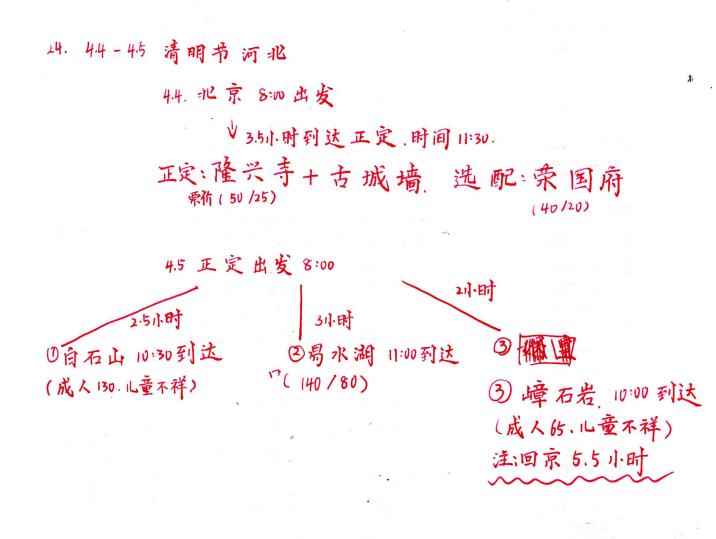 24. 4.4-4.5 清明节河北
4.4. 北京 8:00 出发
↓ 3.5小时到达正定.时间 11:30.
正定:隆兴寺+古城墙. 选配:荣国府
票价(50/25)
(40/20)
4.5 正定出发 8:00
2.5小时
3小时
2小时
①白石山 10:30到达
(成人130.儿童不祥)
②易水湖 11:00到达
(140/80)
③
③嶂石岩. 10:00到达
(成人65、儿童不祥)
注:回京 5.5小时